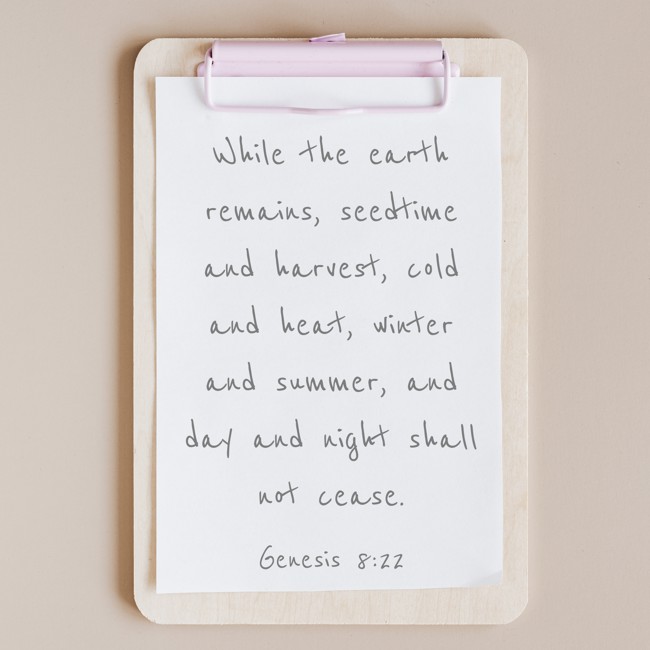 While the earth
remains, seedtime
and harvest, cold
and heat, winter
and summer, and
day and night shall
not cease.
Genesis 8:22